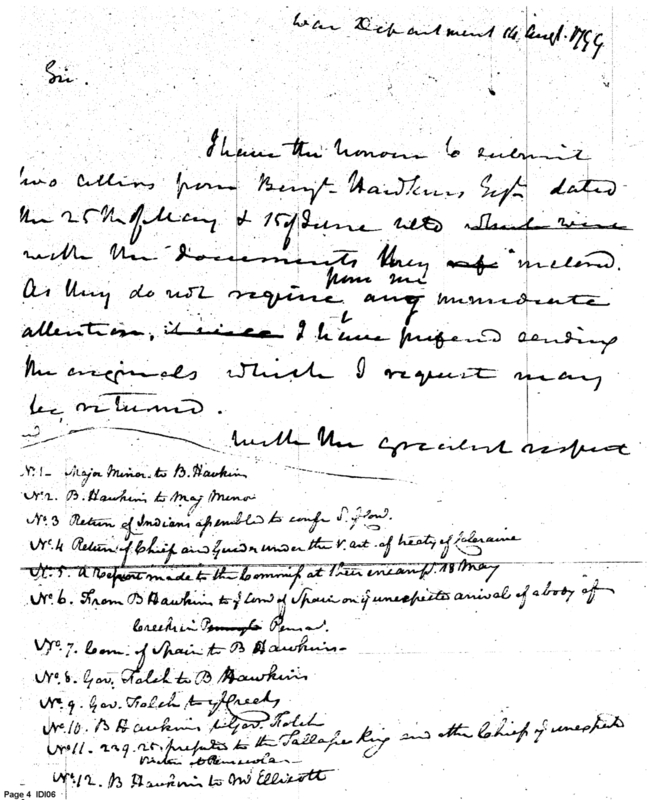 War Department 14 Augt. 1799
Sir.
I have the honour to submit
two letters from Benjn. Hawkins Esqr. dated
the 25th of May & 15 of June which were
with the documents they inclose.
from me
As they do not require any immediate
attention, I have prefered sending
the originals which I request may
be returned.
with the greatest respect
No. 1 - Major Minor to B. Hawkins
No. 2. B. Hawkins to Maj Minor
No. 3 Return of Indians assembled to
No. 4 Return of Chiefs and under the V. art. of treaty of Coleraine
No. 5. A Report made to the Commiss at their encampt. 18 May
No. 6. From B Hawkins to ye Com of Spain on ye unexpected arrival of a body of
Creeks in Pensa.
No. 7. Com. of Spain to B Hawkins -
No. 8. Gov. Folch to B Hawkins
No. 9. Gov. Folch to ye Creeks
No. 10. B Hawkins to Gov. Folch
No. 11. to the Tallapee King and other Chiefs ye unexpected
to Pensacola
No. 12. B Hawkins to Mr Ellicott
Page 4 IDI06